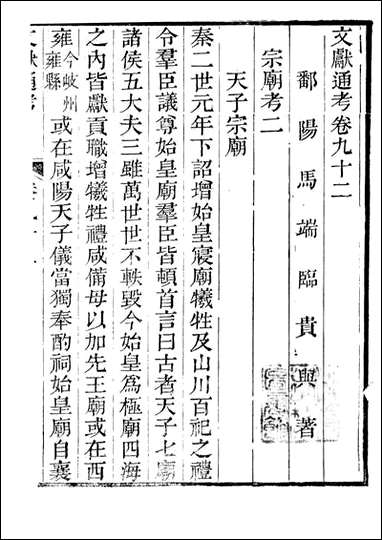 文獻通考卷九十二
鄱陽馬端臨貴與著
宗廟考二
天子宗廟
秦二世元年下詔增始皇寢廟犧牲及山川百祀之禮
令羣臣議尊始皇廟羣臣皆頓首言曰古者天子七廟
諸侯五大夫三雖萬世世不軼毀今始皇爲極廟四海
之內皆獻貢職增犧牲禮咸備毋以加先王廟或在西
雍今岐州雍縣或在咸陽天子儀當獨奉酌祠始皇廟自襄